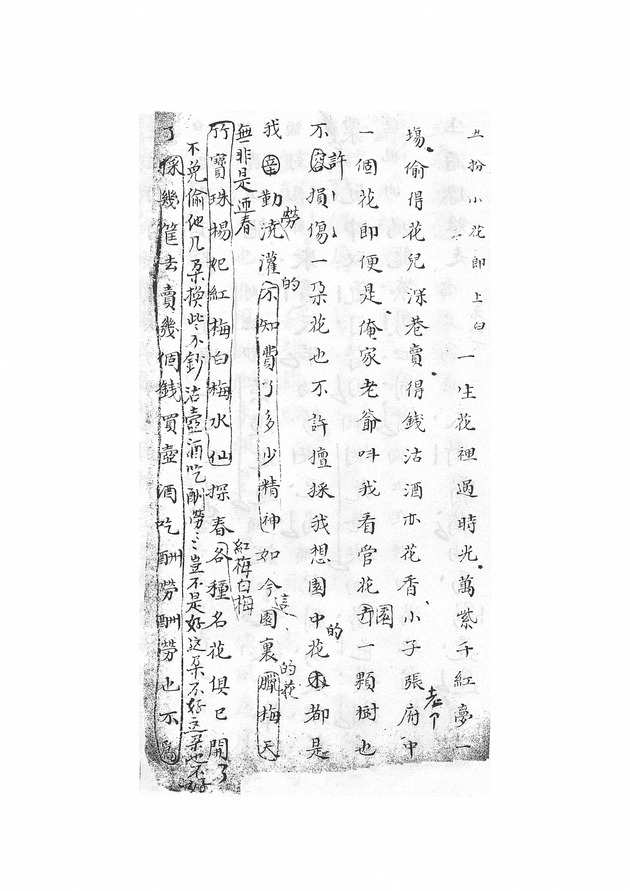 丑扮小花郎上白一生花裡過時光萬紫千紅夢一
場偷得花兒深巷賣得錢沽酒亦花香小子張府中
老个
一個花郎便是俺家老爺呌我看管花园一顆樹也
園
不容損傷一朶花也不許擅採我想園中花木都是
許
的
我辛勤澆灌不知費了多少精神如今園裏臘梅天
勞
的
這
的花
無非是迎春
紅梅白梅
竹寶珠楊妃紅梅白梅水仙探春各種名花俱已開了
不免偷他几朶換些小鈔沽壺酒吃酬勞〻豈不是好这朶不好这朶也不好
了採幾筐去賣幾個錢買壺酒吃酬勞酬勞也不為